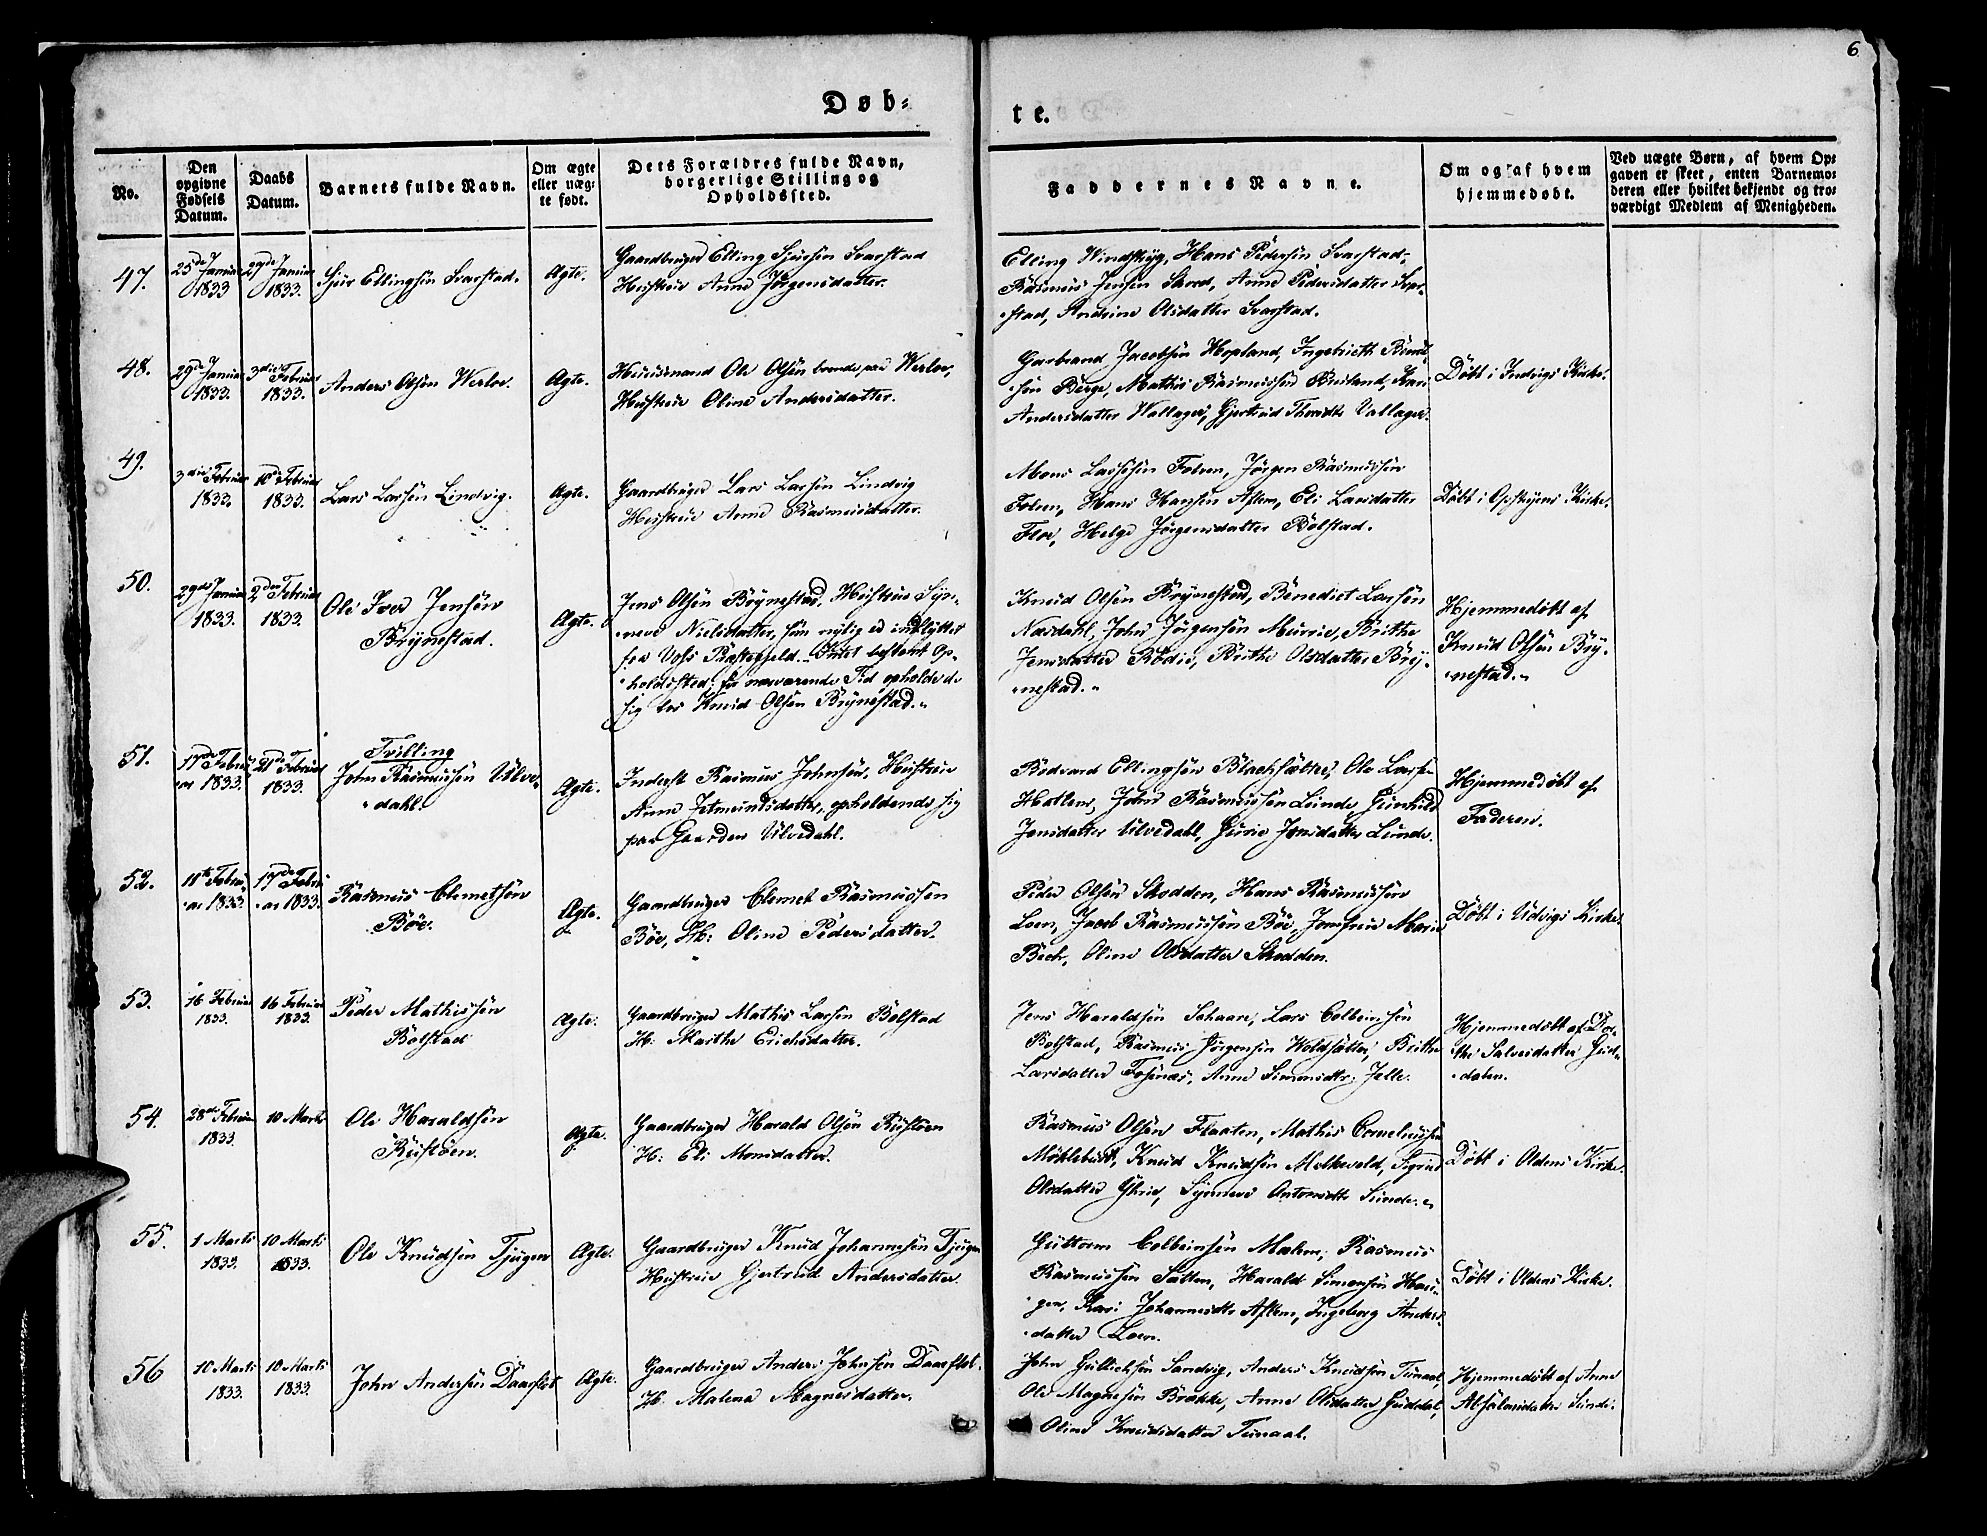 6
Døb=
te.
No.
Den opgivne Fødsels Datum.
Daabs Datum.
Barnets fulde Navn.
Om ægte eller uæg= te født.
Dets Forældres fulde Navn, borgerlige Stilling og Opholdssted.
Faddernes Navne.
Om og af hvem hjemmedøbt.
Ved uægte Børn, af hvem Op= gaven er skeet, enten Barnemo= deren eller hvilket bekjendt og tro= værdigt Medlem af Menigheden.
47.
25de Januar 1833
27de Januar 1833.
Sjur Ellingsen Svarstad.
Ægte.
Gaardbruger Elling Sjursen Svarstad
Hustrue Anne Jörgensdatter.
Elling Windskyg, Hans Pedersen Svarstad,
Rasmus Jensen Skred, Anne Pedersdatter Svar-
stad, Andrine Olsdatter Svarstad.
48.
29de Januar 1833.
3die Februar 1833.
Anders Olsen Werlov.
Ægte.
Huusmand Ole Olsen boende paa Werlov,
Hustrue Oline Andersdatter.
Garbrand Jacobsen Hopland,
sen Berge, Mathis Rasmussen Kari
Andersdatter Wallager, Gjertrud Vallager.
Döbt i Indvigs Kirke.
49.
3die Februar 1833.
10de Februar 1833.
Lars Larsen Lindvig.
Ægte.
Gaardbruger Lars Larsen Lindvig
Hustrue Anne Rasmusdatter.
Mons Lassesen Folven, Jörgen Rasmussen
Folven, Hans Hansen Aflem, Eli Larsdatter
Floe, Helge Jörgensdatter Bolstad.
Döbt i Opstryens Kirke.
50.
29de Januar 1833.
2den Februar 1833.
Ole Iver Jensen
Brynestad.
Ægte.
Jens Olsen Brynestad, Hustrue Syn-
neve Nielsdatter, som nylig er indflyttet
fra Voss Præstegjeld. Intet bestemt Op-
holdssted; for nærværende Tid opholde de
sig hos Knud Olsen Brynestad.
Knud Olsen Brynestad, Benedict Larsen
Nesdahl, John Jörgensen Murrie, Brithe
Jensdatter Rödie, Brithe Olsdatter Bry-
nestad.
Hjemmedöbt af
Knud Olsen Bry-
nestad.
51.
17de Febru-
ar 1833.
21de Februar 1833.
Tvilling
John Rasmussen Ulve-
dahl.
Ægte.
Inderst Rasmus Johnsen, Hustrue
Anne Jetmundsdatter, opholdende sig
paa Gaarden Ulvedahl.
Bodvard Ellingsen Blachsætter, Ole Larsen
Hatlem, John Rasmussen Lunde, Gunhild
Jensdatter Ulvedahl, Gurie Jonsdatter Lunde.
Hjemmedöbt af
Faderen.
52.
11te Febru-
ar 1833.
17de Febru-
ar 1833.
Rasmus Clemetsen
Böe.
Ægte.
Gaardbruger Clemet Rasmussen
Böe, H: Oline Pedersdatter.
Peder Olsen Skodden, Hans Rasmussen
Loen, Jacob Rasmussen Böe, Jomfrue Marie
Bech, Oline Olsdatter Skodden.
Döbt i Udvigs Kirke.
53.
16 Februar
1833.
16 Februar
1833.
Peder Mathissen
Bolstad
Ægte.
Gaardbruger Mathis Larsen Bolstad
H: Marthe Erichsdatter.
Jens Haraldsen Schaare, Lars Colbeinsen
Bolstad, Rasmus Jörgensen Woldsætter, Brithe
Larsdatter Fosnæs, Anne Simensdtr. Jelle.
Hjemmedöbt af Dor-
the Salvesdatter Gud-
dalen.
54.
28de Februar
1833.
10 Marts
Ole Haraldsen
Rustöen.
Ægte.
Gaardbruger Harald Olsen Rustöen
H: Eli Monsdatter.
Rasmus Olsen Flaaten, Mathis Corneliussen
Möklebust, Knud Knudsen Melkevold, Sigrid
Olsdatter Yhrie, Synneve Antonsdtr Sunde.
Döbt i Oldens Kirke.
55.
1 Marts
1833.
10 Marts
1833.
Ole Knudsen Tjugen
Ægte.
Gaardbruger Knud Johannesen Tjugen
Hustrue Gjertrud Andersdatter.
Guttorm Colbeinsen Malm, Rasmus
Rasmussen Sætten, Harald Simonsen Hau-
gen, Kari Johannesdtr Aflem, Ingeborg Anders-
datter Loen.
Döbt i Oldens Kirke.
56
10 Marts
1833.
10 Marts
1833.
John Andersen Daarflot
Ægte.
Gaardbruger Anders Johnsen Daarflot.
H. Malene Magnesdatter.
John Gullichsen Sandvig, Anders Knudsen Tunaal,
Ole Magnesen Brække, Anne Olsdatter Guddal,
Oline Knudsdatter Tunaal.
Hjemmedöbt af Anne
Absalonsdatter Sunde.